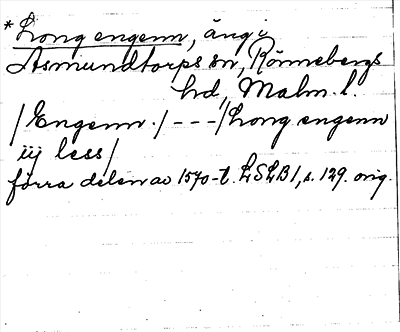 *Long engenn, äng i
Asmundtorps sn, Rönnebergs
hd, Malm. l.
/Engenn./ - - - /Long engenn
iij less/
förra delen av 1570-t. LSLB 1, s. 129. orig.